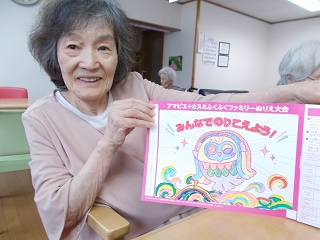 アマビエ+カスミふくふくファミリーぬりえ大会
みんなでのりこえよう!